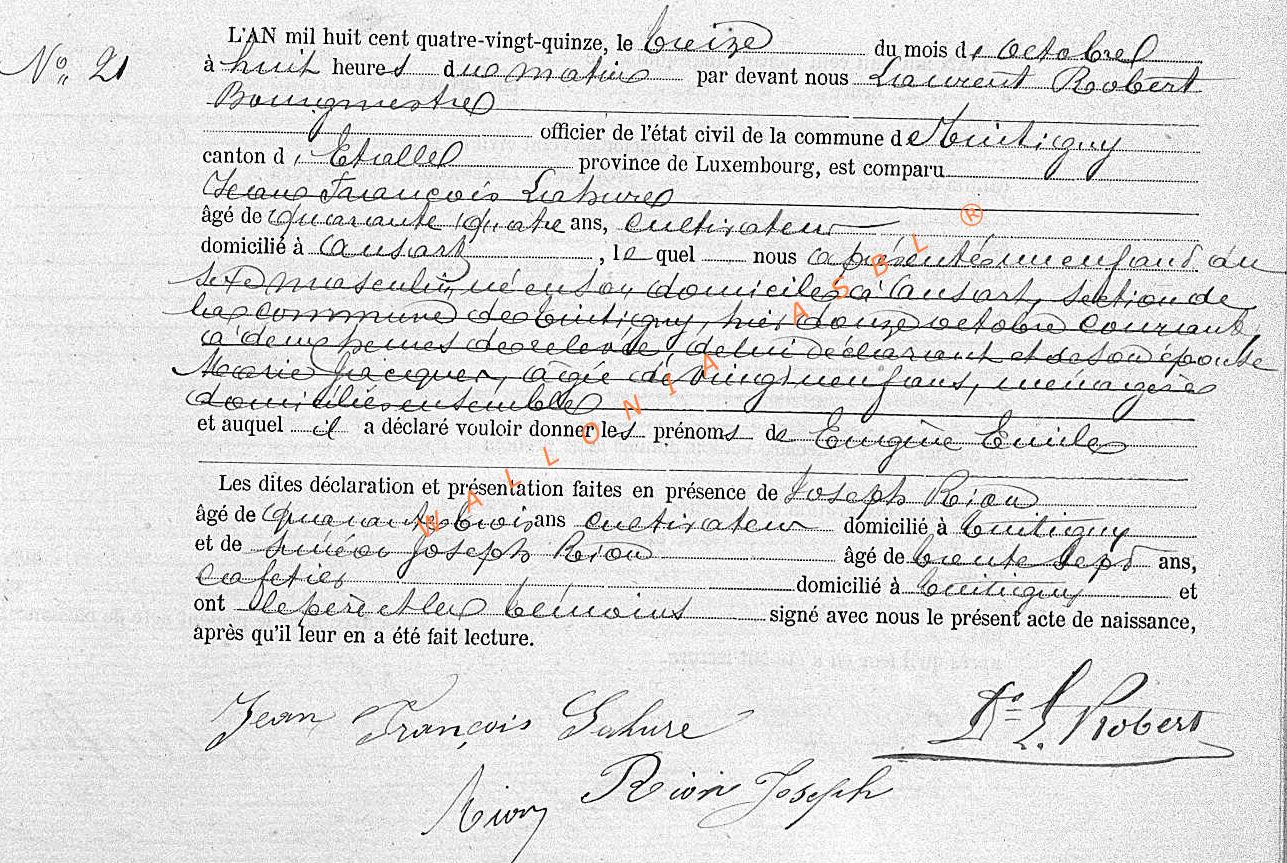 No. 21
L'AN mil huit cent quatre-vingt-quinze, le treize du mois d'octobre
à huit heures du matin par devant nous Laurent Robert
Bourgmestre
officier de l'état civil de la commune de Tintigny
canton d'Etalle province de Luxembourg, est comparu
Jean François Lahure
âgé de quarante quatre ans, cultivateur
domicilié à Ansart, lequel nous a présenté un enfant du
sexe masculin, né en son domicile à Ansart, section de
la commune de Tintigny, hier douze octobre courant,
à deux heures de relevée, de lui déclarant et de son épouse
Marie Jacques, âgée de vingt neuf ans, ménagère
domiciliés ensemble
et auquel il a déclaré vouloir donner les prénoms de Eugène Emile
Les dites déclaration et présentation faites en présence de Joseph Rion
âgé de quarante trois ans cultivateur domicilié à Tintigny
et de Joseph Rion âgé de trente sept ans,
cafetier domicilié à Tintigny et
ont le père et les témoins signé avec nous le présent acte de naissance,
après qu'il leur en a été fait lecture.
Jean François Lahure
Dr L. Robert
Rion Joseph
Rion
WALLONIA ASBL ®